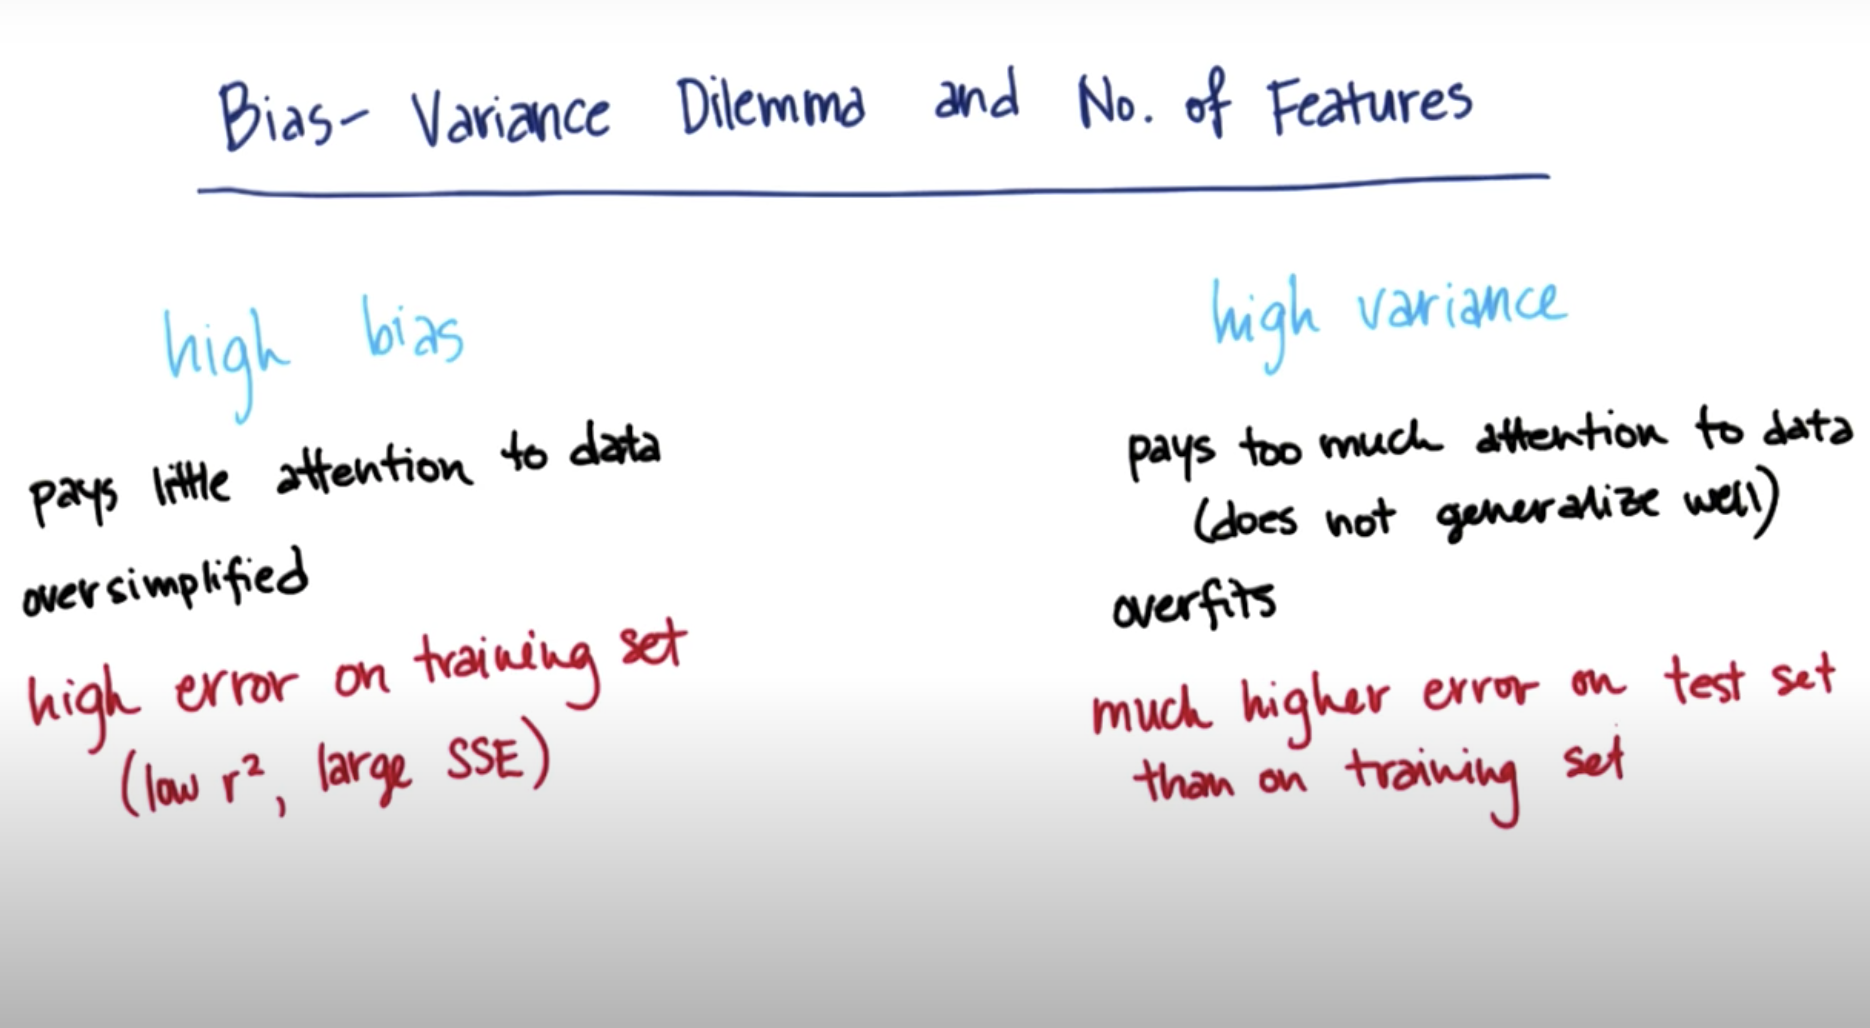 Bias- Variance Dilemma and No. of Features
high bias
pays little attention to data
oversimplified
high error on training set
(low r², large SSE)
high variance
pays too much attention to data
(does not generalize well)
overfits
much higher error on test set
than on training set